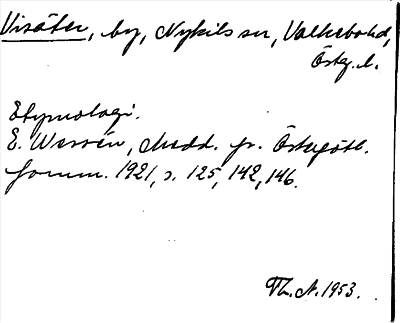 Visäter, by, Nykils sn, Valkebo hd,
Östg. l.
Etymologi.
E. Wessén, Medd. fr. Östergötl.
fornm. 1921, s. 125, 142, 146.
Th. N. 1953.